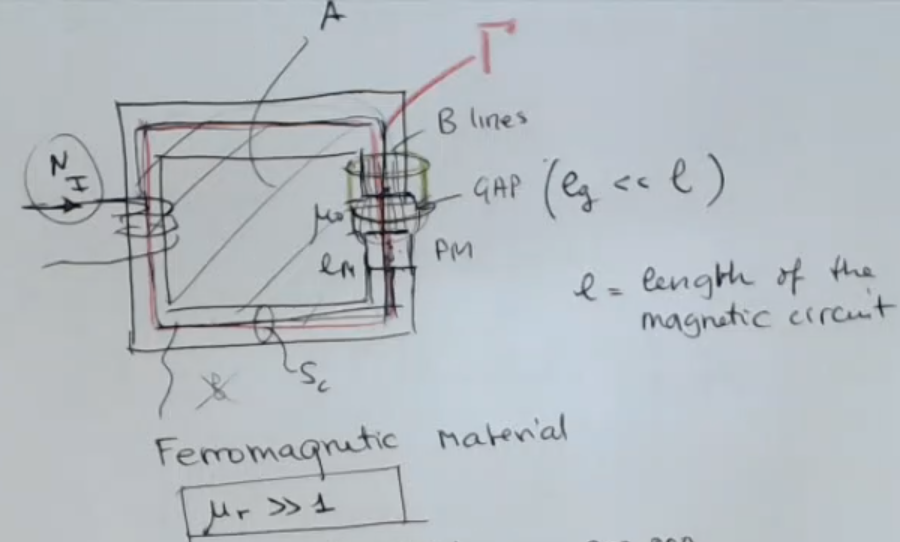 A
Γ
B lines
N
I
GAP (lg << l)
μ0
PM
lM
l = length of the
magnetic circuit
Sc
Ferromagnetic material
μr >> 1